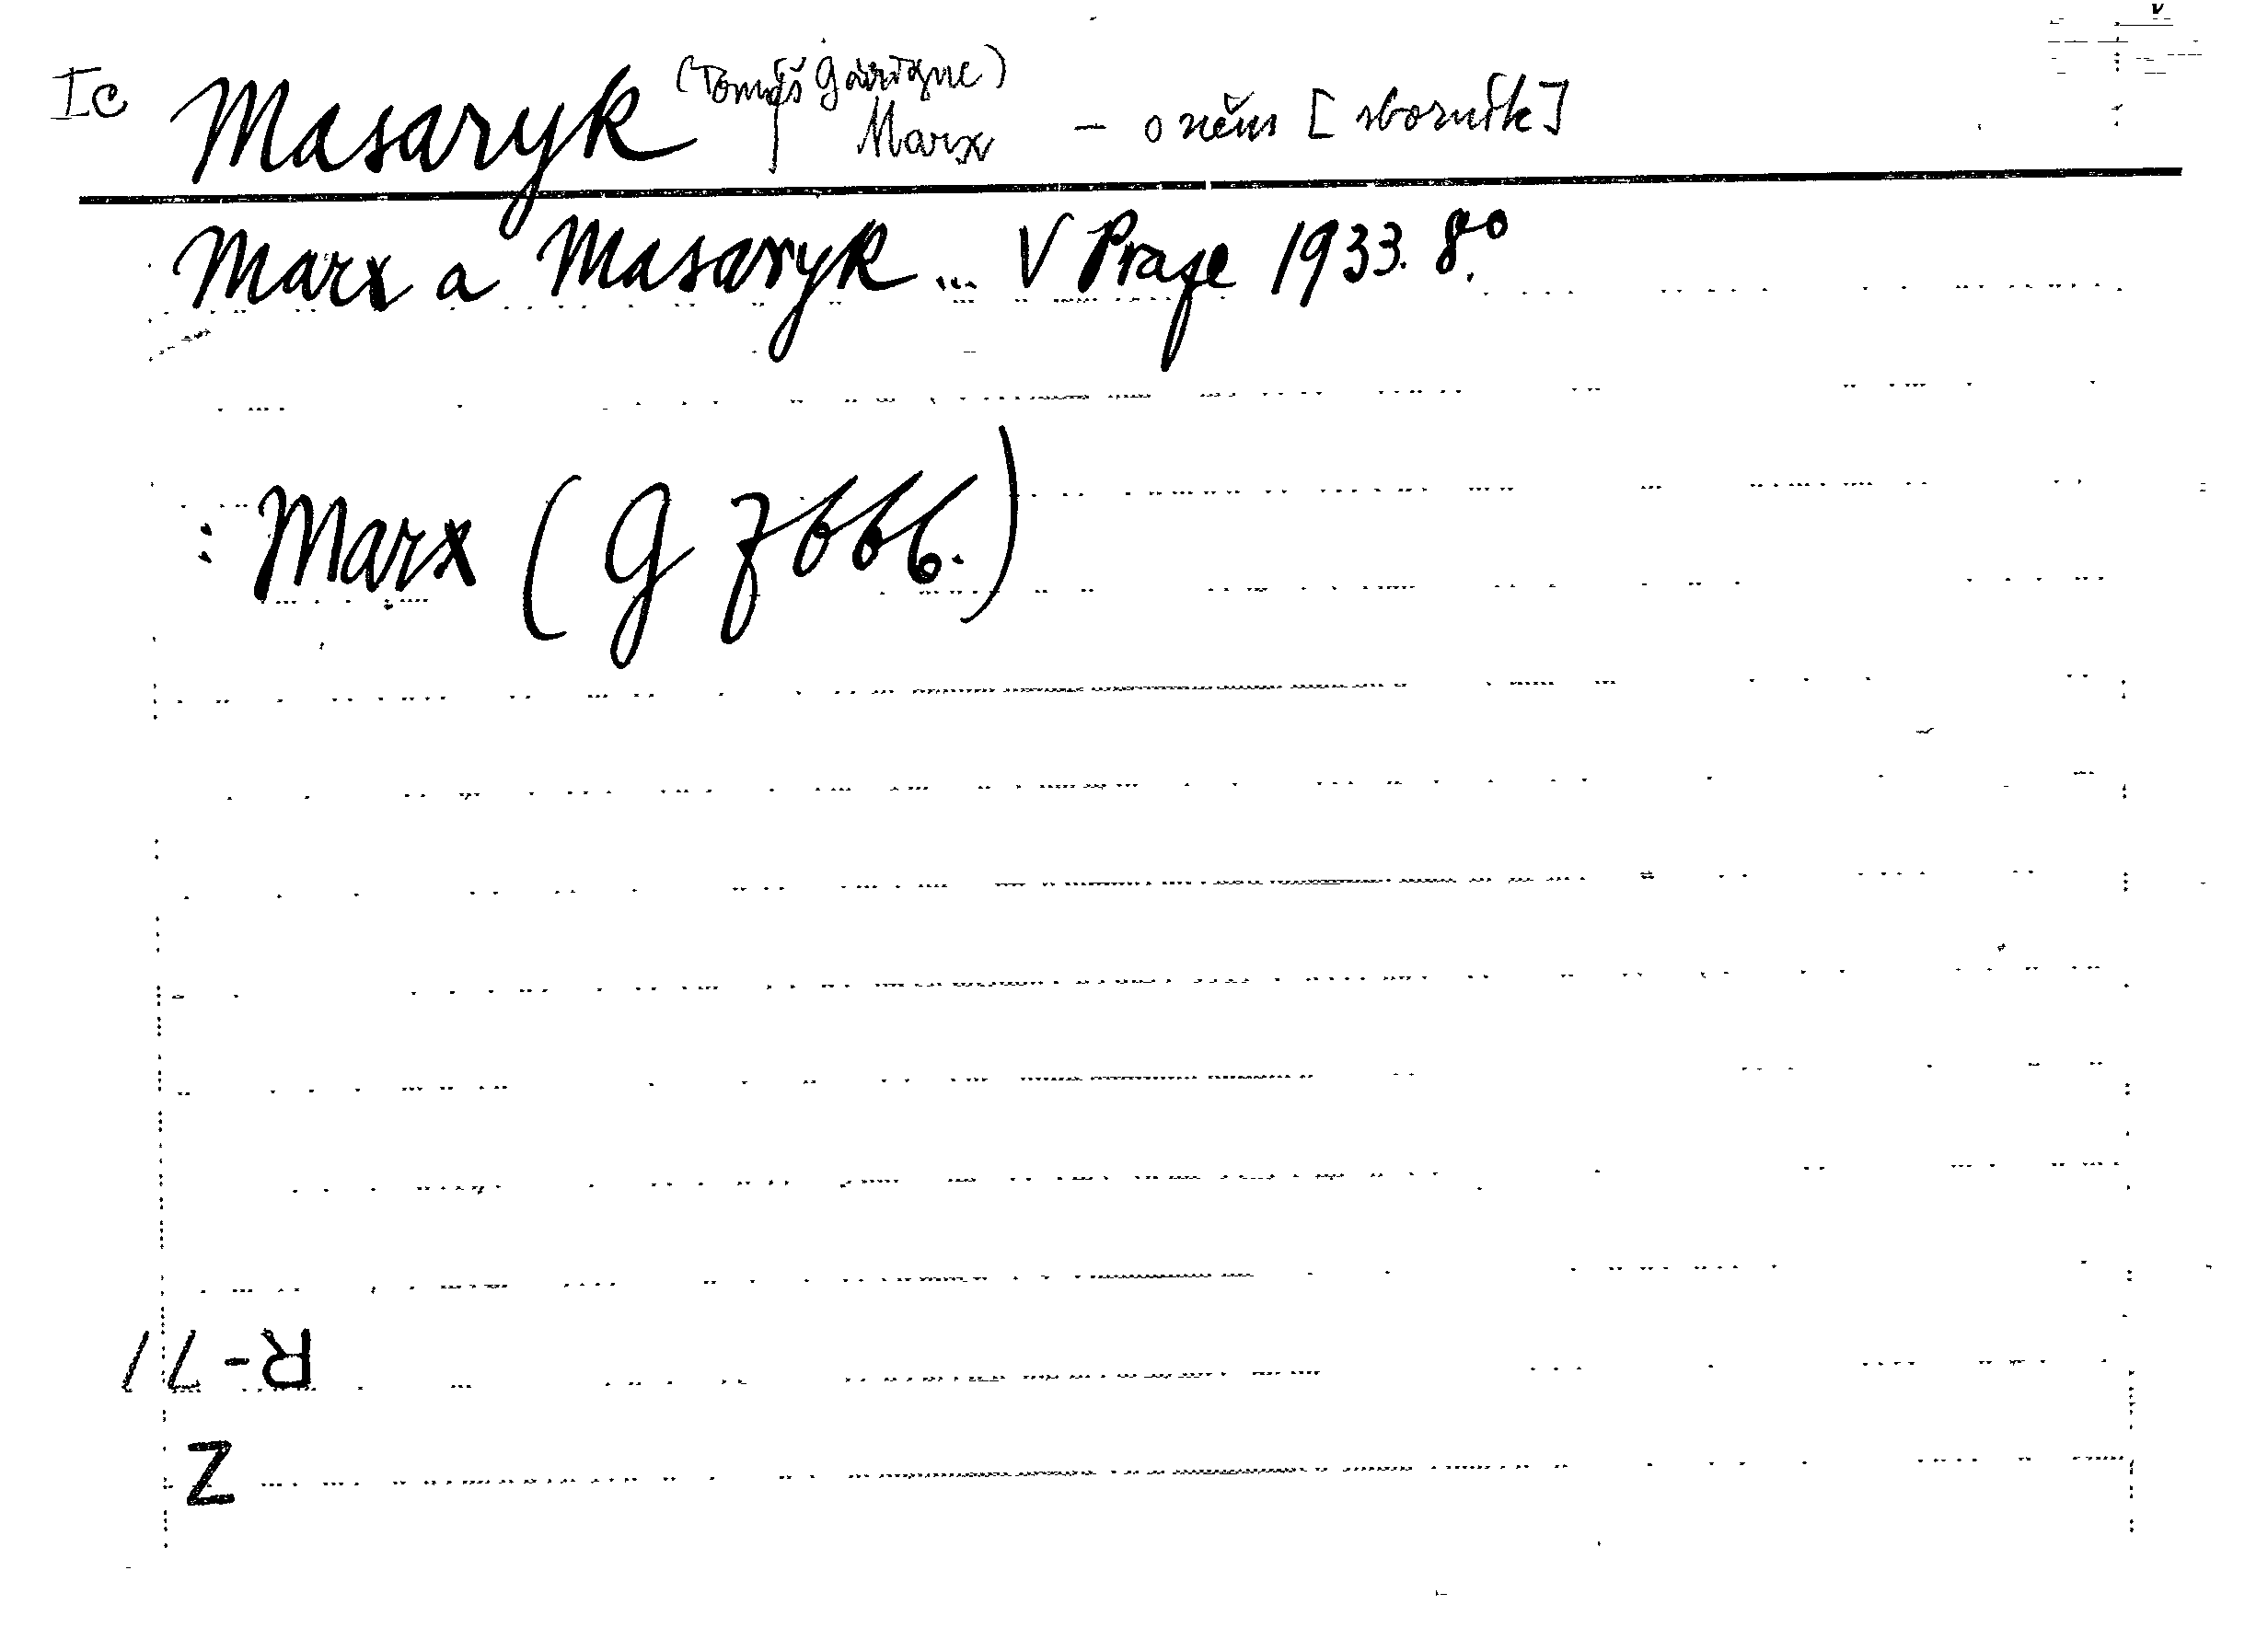 Ic Masaryk (Tomáš Garrigue) Marx - o něm [sborník]
Marx a Masaryk ... V Praze 1933. 8.º
: Marx (G 7666.)
R-71
Z